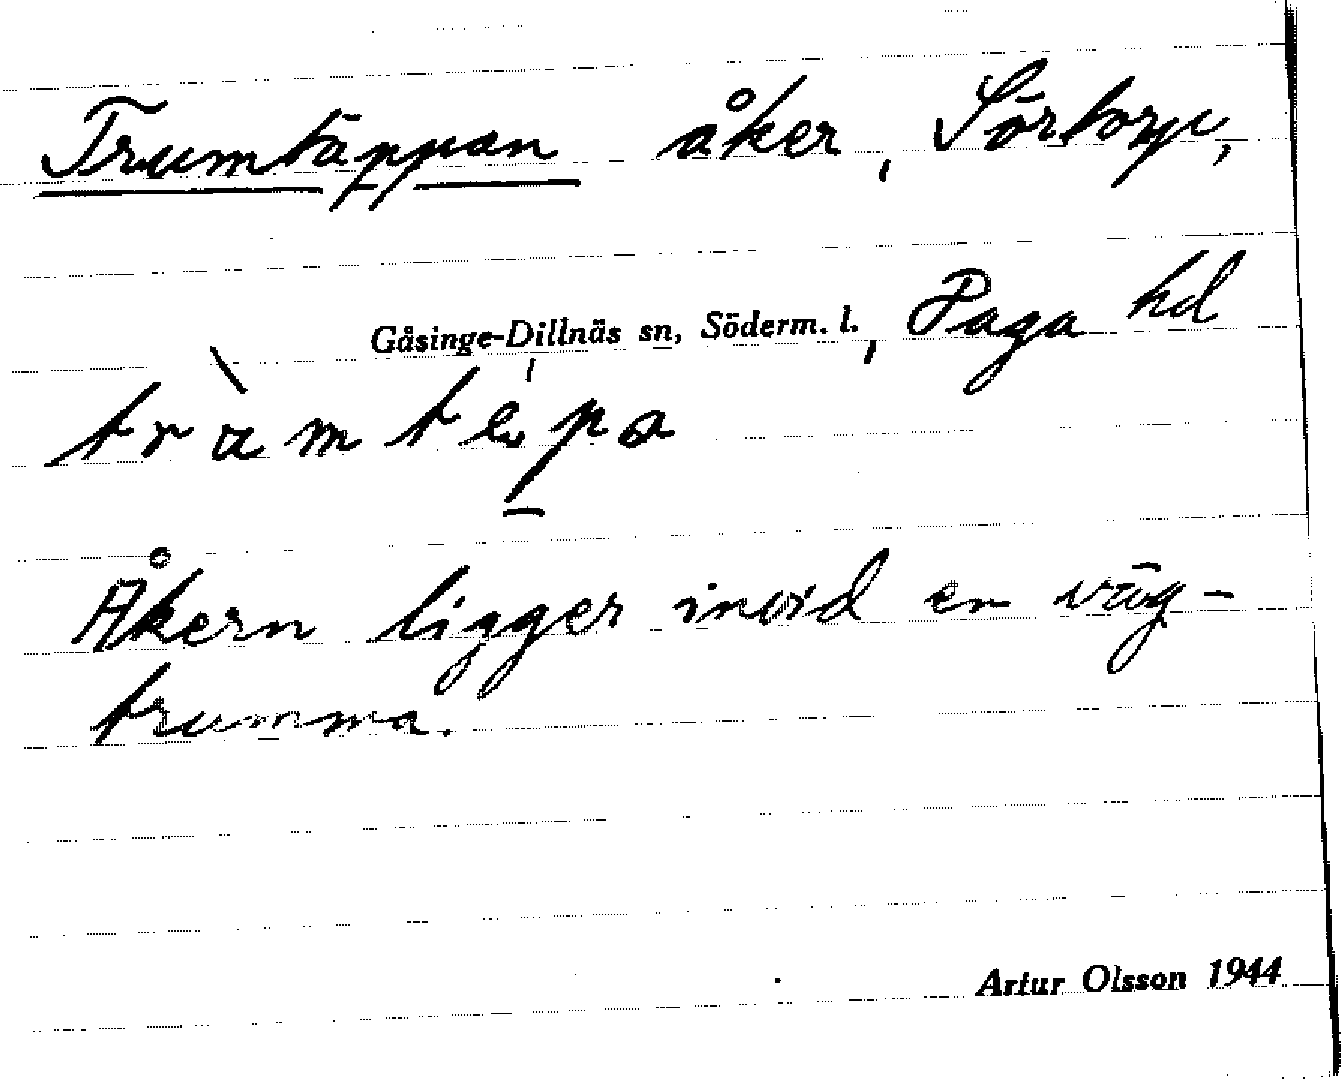 Trumtäppan åker, Sörtorp,
Gåsinge-Dillnäs sn, Söderm. l., Daga hd
Åkern ligger invid en väg-
trumma.
Artur Olsson 1944